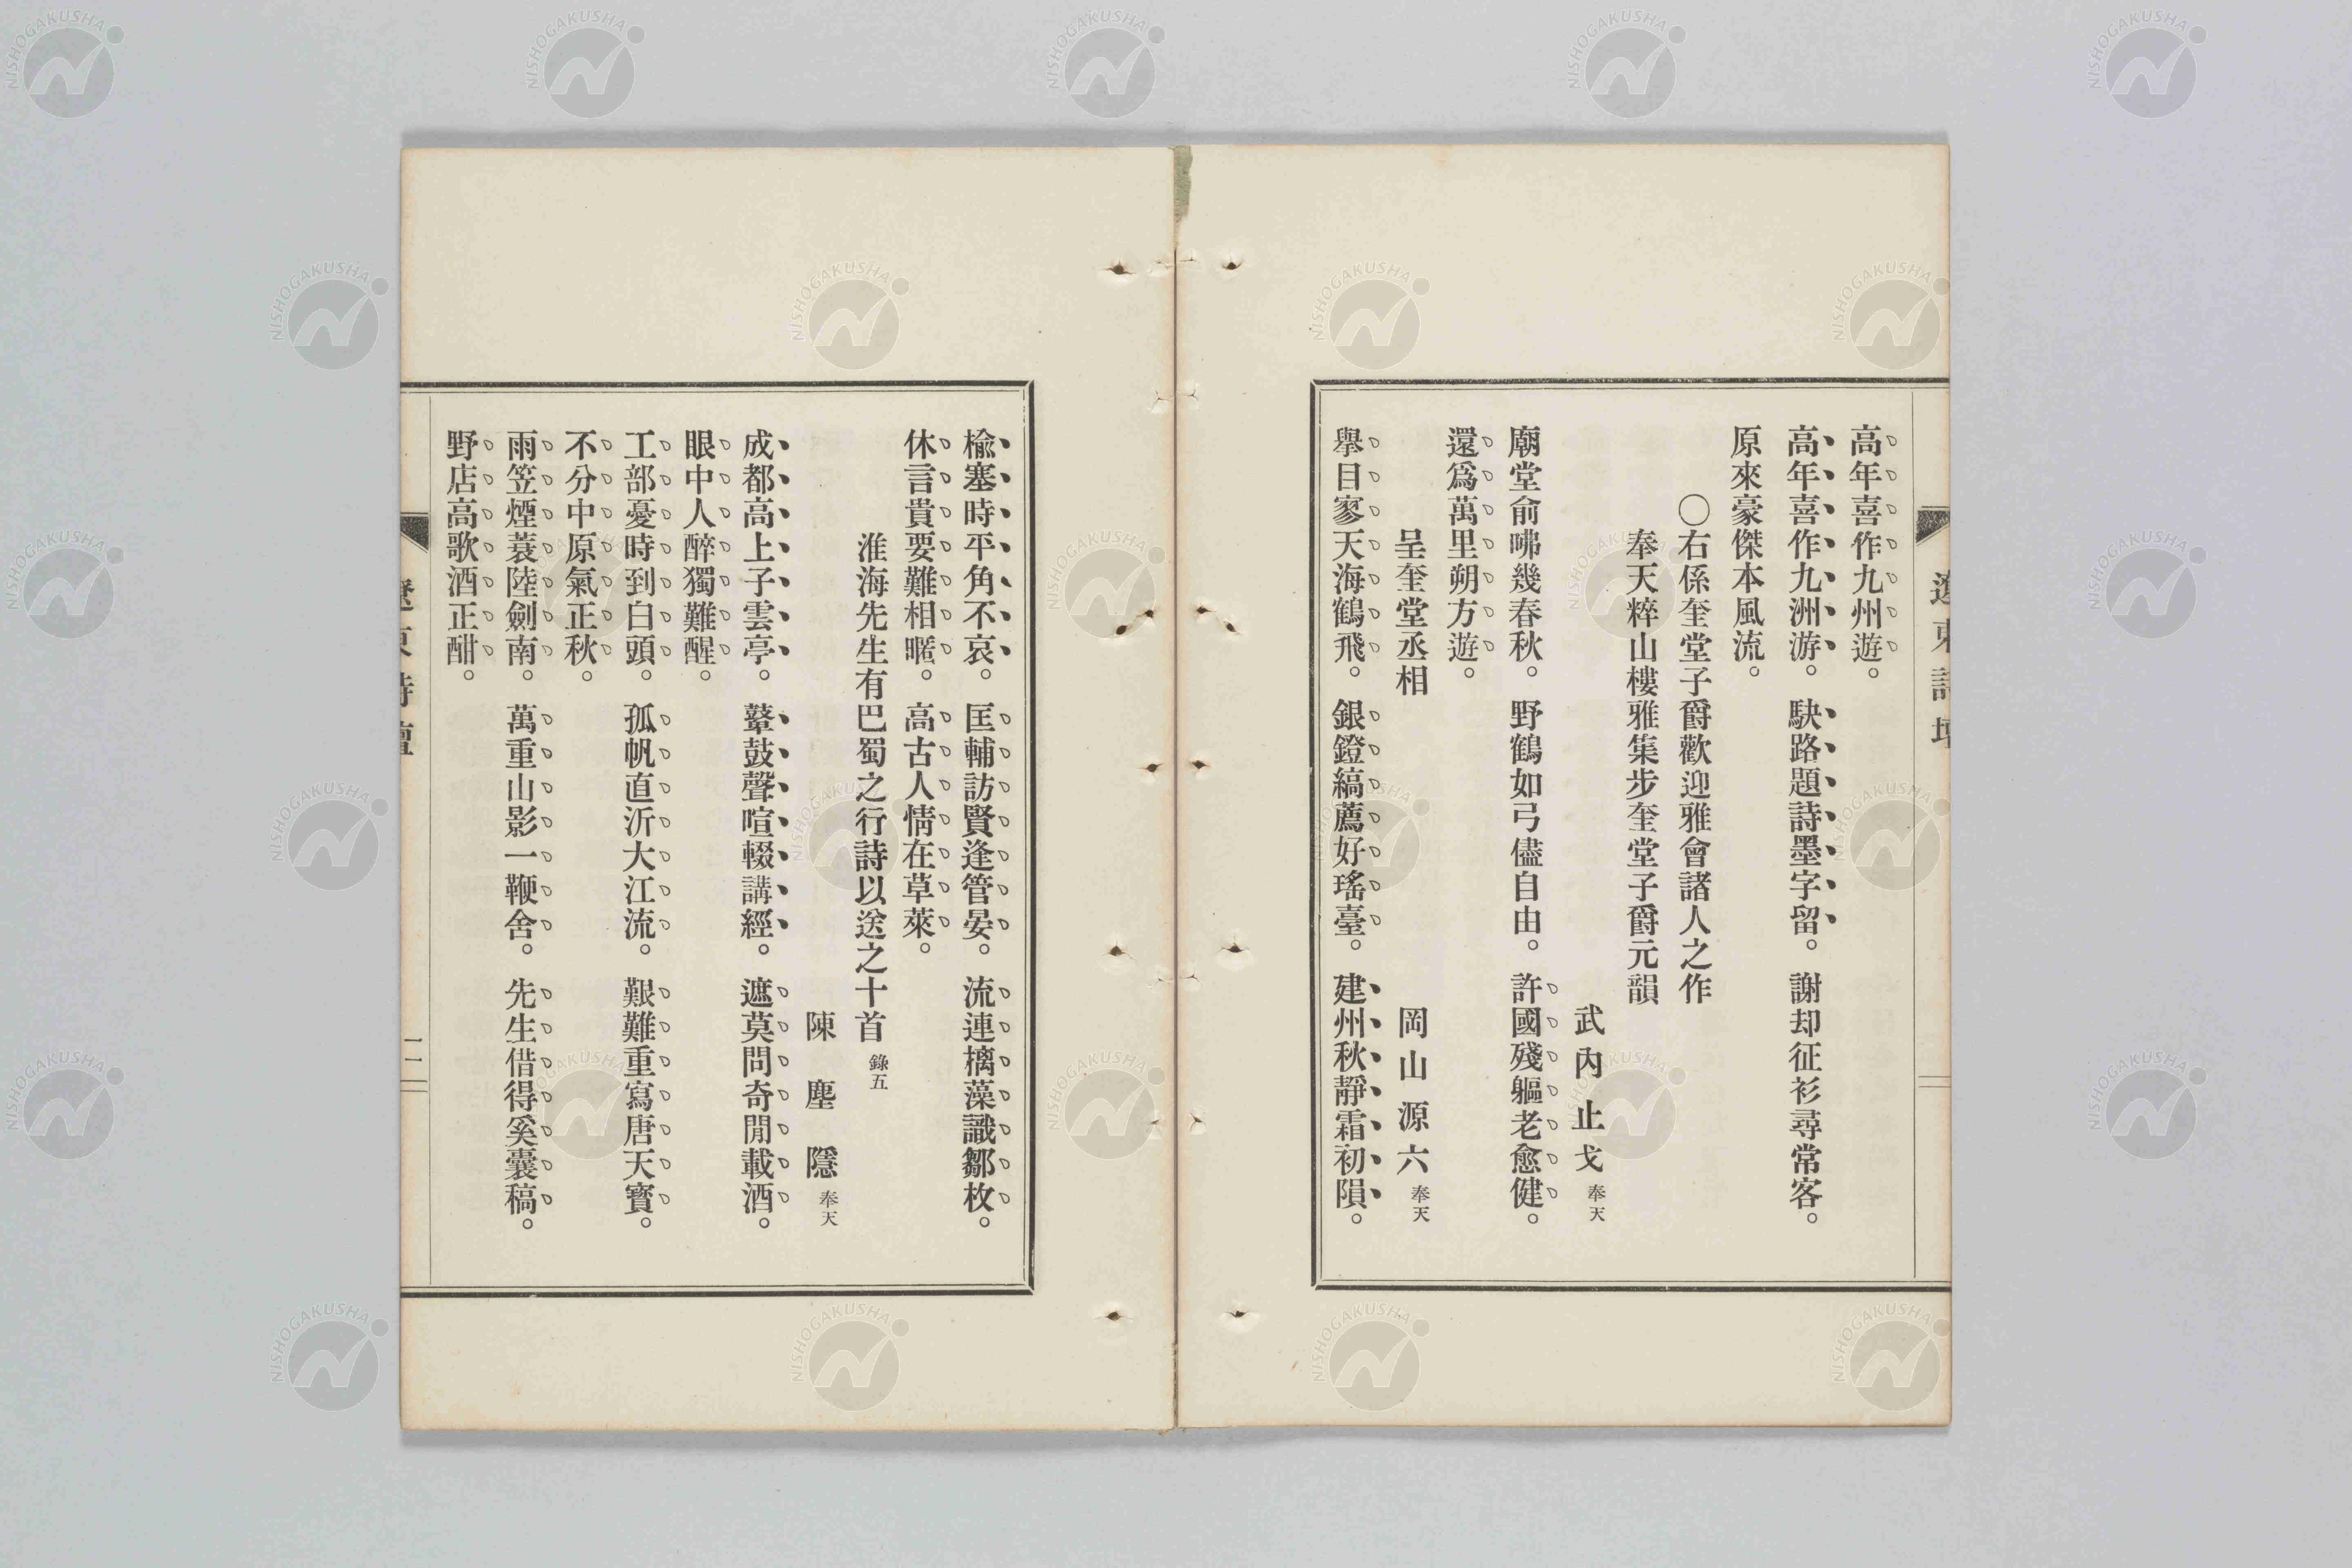 遼東詩壇
高年喜作九州遊。
高年喜作九洲游。駃路題詩墨字留。謝却征衫尋常客。
原來豪傑本風流。
〇右係奎堂子爵歡迎雅會諸人之作
奉天粹山樓雅集步奎堂子爵元韻
武內止戈 奉天
廟堂俞咈幾春秋。野鶴如弓儘自由。許國殘軀老愈健。
還爲萬里朔方遊。
呈奎堂丞相
岡山源六 奉天
舉目寥天海鶴飛。銀鐙縞薦好瑤臺。建州秋靜霜初隕。
楡塞時平角不哀。匡輔訪賢逢管晏。流連摛藻識鄒枚。
休言貴要難相暱。高古人情在草萊。
淮海先生有巴蜀之行詩以送之十首 錄五
陳塵隱 奉天
成都高上子雲亭。鼙鼓聲喧輟講經。遮莫問奇閒載酒。
眼中人醉獨難醒。
工部憂時到白頭。孤帆直泝大江流。艱難重寫唐天寶。
不分中原氣正秋。
雨笠煙蓑陸劍南。萬重山影一鞭含。先生借得奚囊稿。
野店高歌酒正酣。
遼東詩壇
NISHOGAKUSHA